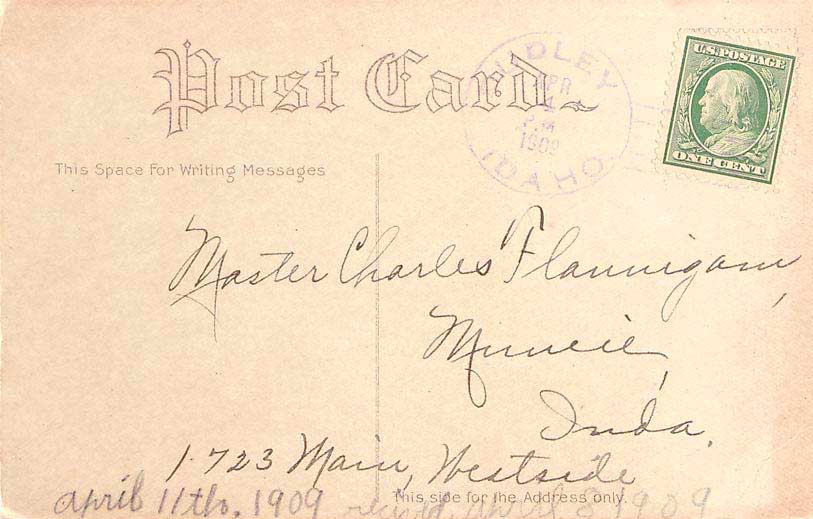 Post Card
UDLEY
APR
4
P.M.
1909
IDAHO.
U.S. POSTAGE
ONE CENT
This Space for Writing Messages
Master Charles Flannigam,
Muncie,
Inda.
1723 Main, Westside
This side for the Address only.
april 11th, 1909 april 8 1909